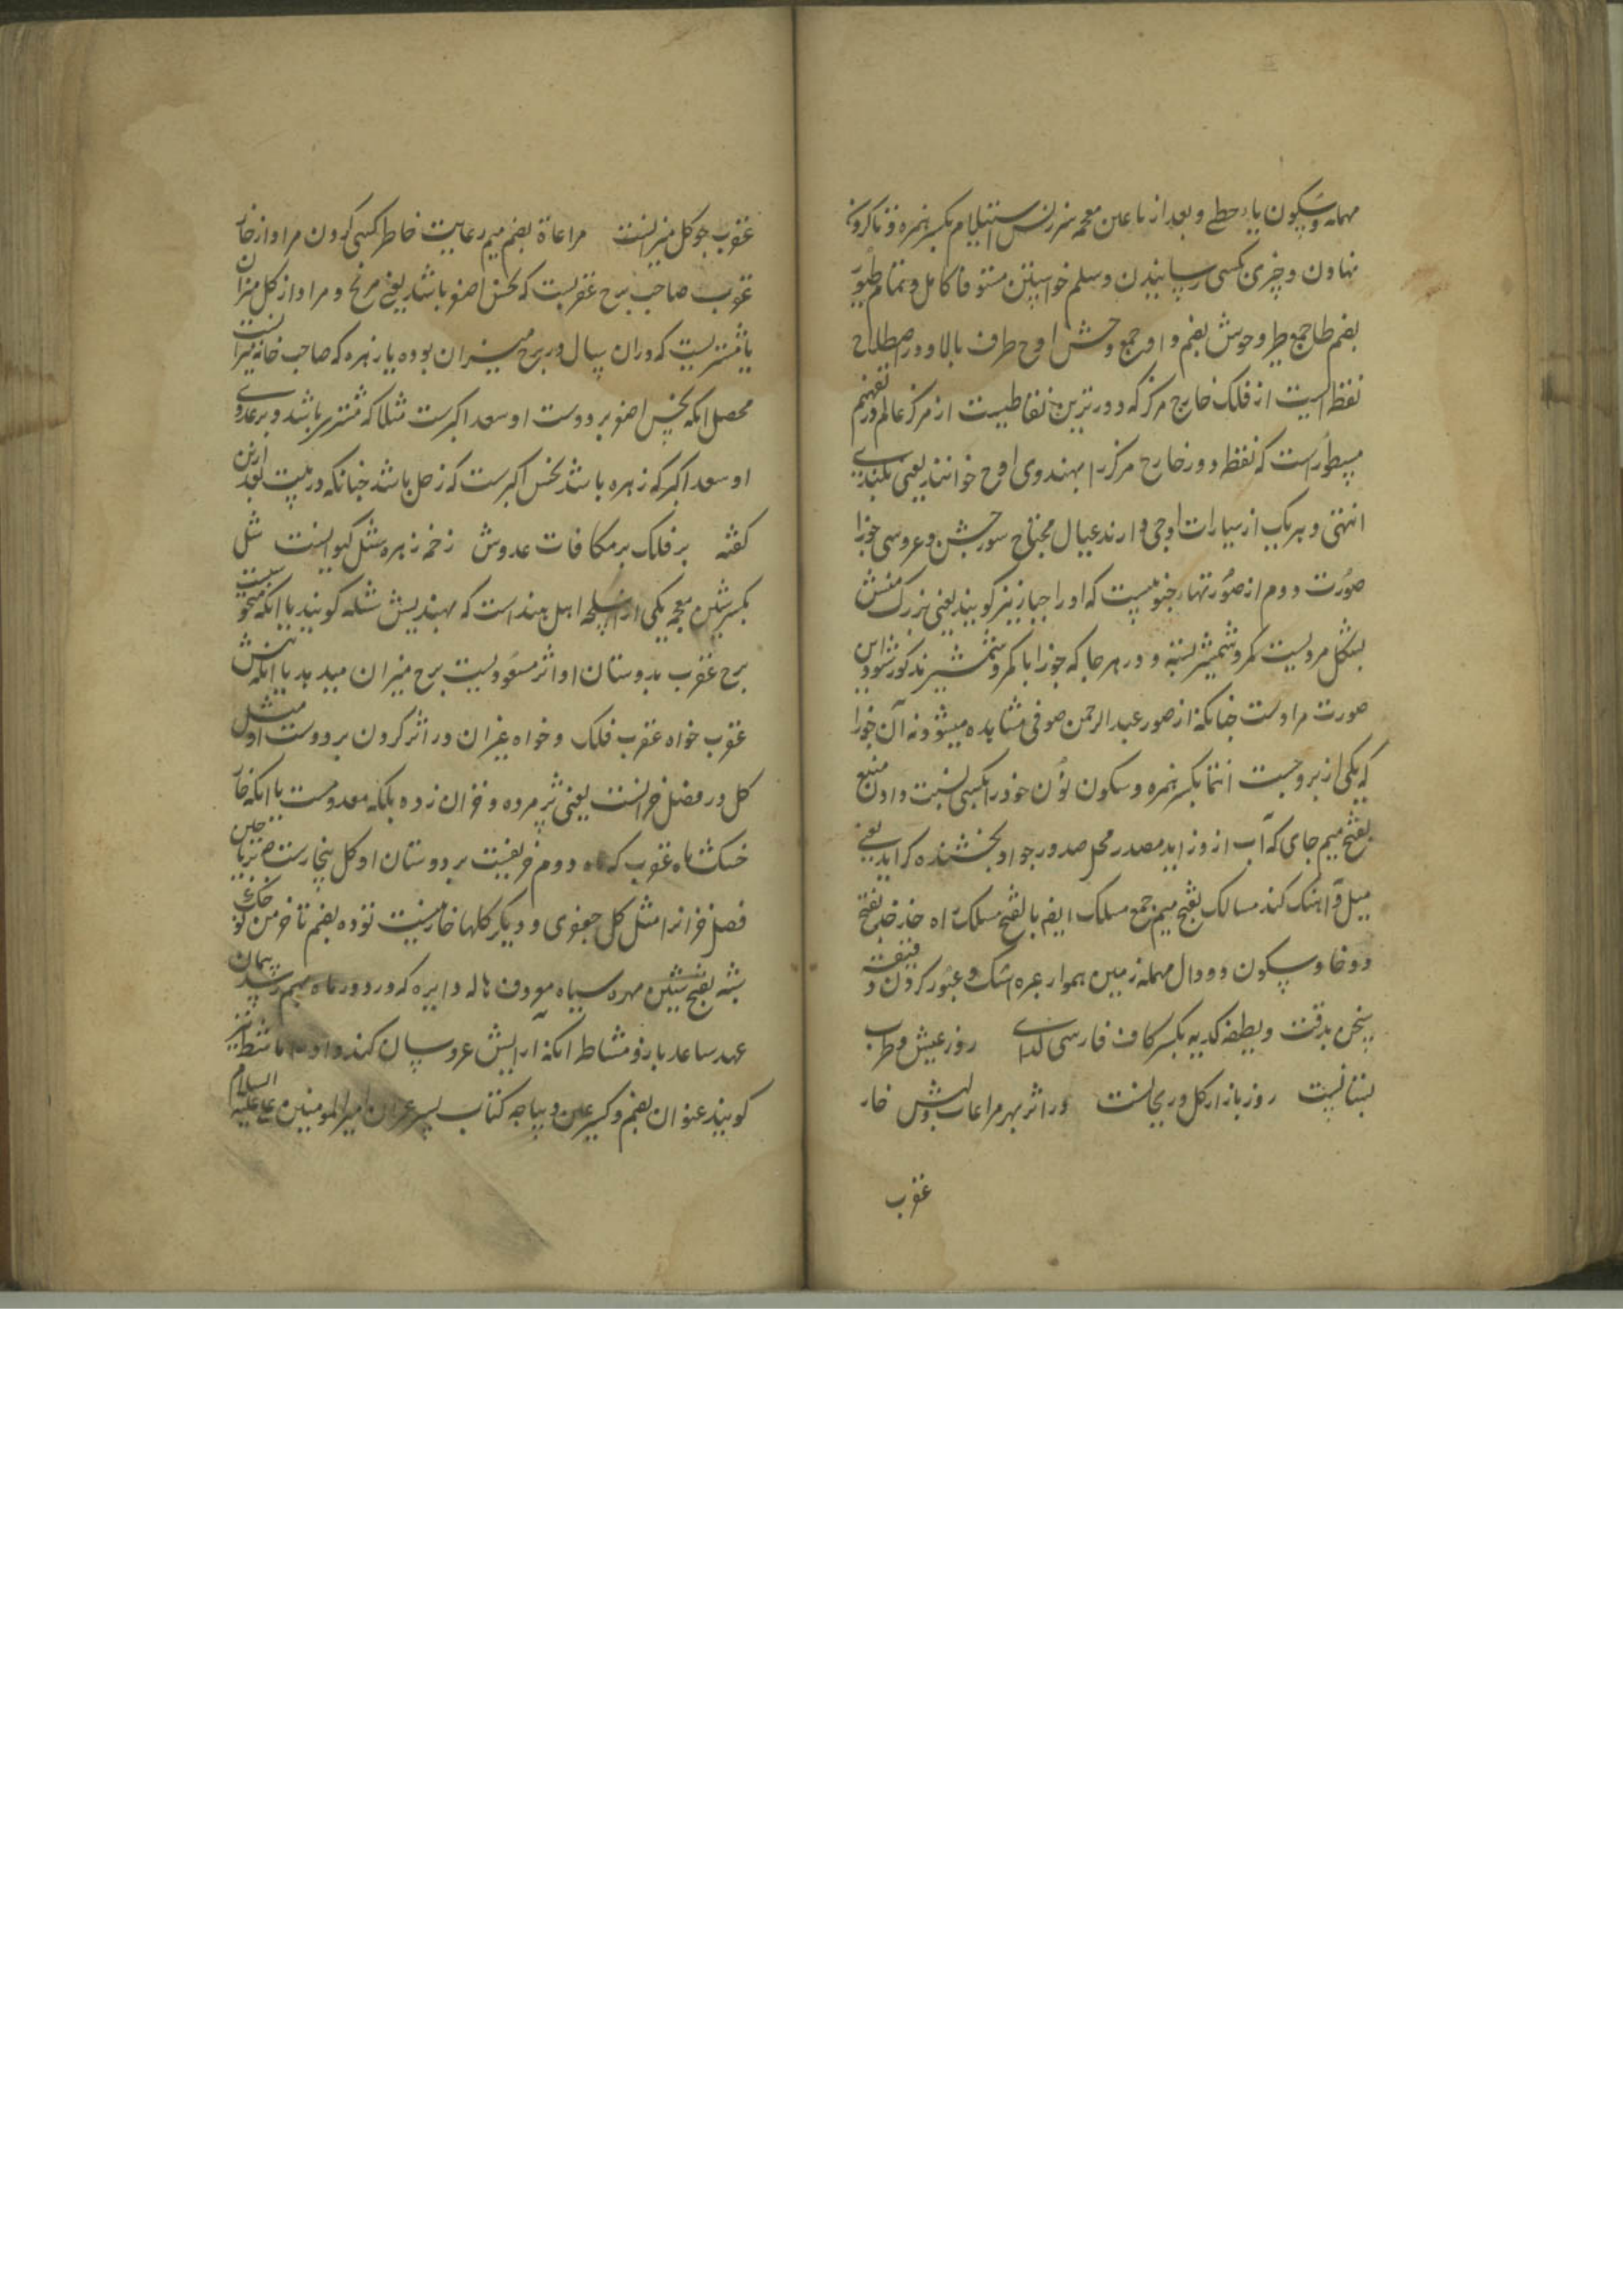 مهمله و سکون یاء حطی و بعد از یا عین معجمه سرزنش استیلام بکسر همزه
نهادن و چیزی بکسی رسانیدن و سلم خواستن مستوفا کامل و تمام طیور
بضم طا جمع طیر و حوش بضم واو جمع وحش اوج طرف بالا و در اصطلاح
نقطه ایست از فلک خارج مرکز که دورترین نقاطیست از مرکز عالم در تفهیم
مسطور است که نقطه دور خارج مرکز را بهندوی اوج خوانند یعنی بلندی
انتهی و هر یک از سیارات اوجی دارند عیال محتاج سور جشن و عروسی جوزا
صورت دوم از صورتهاء جنوبیست که او را جبار نیز گویند یعنی بزرگ منش
بشکل مردیست کمر و شمشیر بسته و در هر جا که جوزا با کمر و شمشیر مذکور شود این
صورت مرادست چنانکه از صور عبدالرحمن صوفی مشاهده میشود نه آن جوزا
که یکی از بروجست انتما بکسر همزه و سکون نون خود را بکسی نسبت دادن منبع
بفتح میم جای که آب ازو زاید مصدر محل صدور جواد بخشنده گراید یعنی
میل و آهنگ کند مسالک بفتح میم جمع مسلک ایضا بالفتح مسلک راه خدخد بفتح
دو خا و سکون دو دال مهمله زمین هموار عبره اشک و عبور کردن و
سخن بدقت و لطیفه کدیه بکسر کاف فارسی گدای روز عیش و طرب
بستانیست روز بازار گل و ریحانست در اثر بهر مراعات دلش خار
عقرب
عقرب چو گل میزانست مراعاة بضم میم رعایت خاطر کسی کردن مراد از خار
عقرب صاحب برج عقربست که نحس اصغر باشد یعنی مریخ و مراد از گل میزان
یا مشتریست که در آن سال در برج میزان بوده یا زهره که صاحب خانه میزانست
محصل آنکه نحس اصغر بر دوست او سعد اکبرست مثلا که مشتری باشد و بر عدوی
او سعد اکبر که زهره باشد نحس اکبرست که زحل باشد چنانکه در بیت بعد ازین
گفته بر فلک بر مکافات عدوش زخم زهره شل کیوانست شل
بکسر شین معجمه یکی از اسلحه اهل هند است که بهندیش شله گویند یا آنکه
برج عقرب بدوستان او اثر مسعودیت برج میزان میدهد یا آنکه نیش
عقرب خواه عقرب فلک و خواه غیر آن در اثر کردن بر دوست او مثل
گل در فصل خزانست یعنی پژمرده و خزان زده بلکه معدومست یا آنکه خار
خسک ماه عقرب که ماه دوم خریفیت بر دوستان او گل بیخارست
فصل خزان را مثل گل جعفری و دیگر گلها خار نیست توده بضم تا خرمن
شبه بفتح شین مهره سیاه معروف هاله دایره که در دور ماه بهم رسد پیمان
عهد ساعد بازو مشاطه آنکه آرایش عروسان کند و او را ماشطه نیز
گویند عنوان بضم و کسر عین دیباجه کتاب پسر عمران امیر المومنین علی علیه السلام